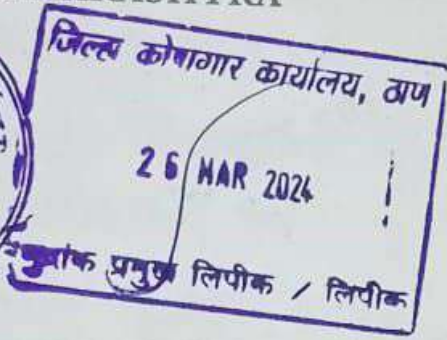 जिल्हा कोषागार कार्यालय, ठाण
26 MAR 2024
मुद्रांक प्रमुख लिपीक / लिपीक